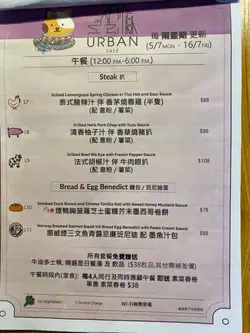 URBAN
CAFÉ
每 兩星期 更新
(5/7MON - 16/7FRI)
午餐 (12:00 P.M.-6:00 P.M.)
Steak 扒
Grilled Lemongrass Spring Chicken in Thai Hot and Sour Sauce
L7 泰式酸辣汁 伴 香茅燒春雞 (半隻) $88
(配 意粉 / 薯菜)
Grilled Herb Pork Chop with Yuzu Sauce
L8 清香柚子汁 伴 香草燒豬扒 $98
(配 意粉 / 薯菜)
Grilled Beef Rib Eye with French Pepper Sauce
L9 法式胡椒汁 伴 牛肉眼扒 $108
(配 意粉 / 薯菜)
Bread & Egg Benedict 麵包 / 班尼迪蛋
Smoked Duck Breast and Cheese Tortilla Roll with Sweet Honey Mustard Sauce
L10 煙鴨胸菠蘿芝士蜜糖芥末墨西哥卷餅 $78
Norway Smoked Salmon Squid Ink Bread Egg Benedict with Pesto Cream Sauce
L11 挪威煙三文魚青醬忌廉班尼迪 配 墨魚汁包 $88
所有套餐免費贈送
牛油多士條, 精選是日餐湯 及 飲品 ($38飲品,其他需補差價)
午餐時段內(堂食): 每4人同行及同時惠顧午餐 即送 素菜春卷
單售 素菜春卷 $38
For Vegetarians
+ Service Charge